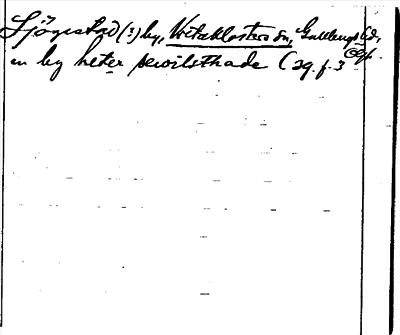 Sjögestad (?) by, Vretaklosters sn, Gullbergs hd, Ögl.
en by heter sewilsthade (